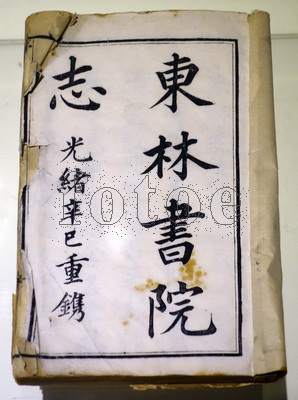 東林書院
志
光緒辛巳重鐫
rotoe